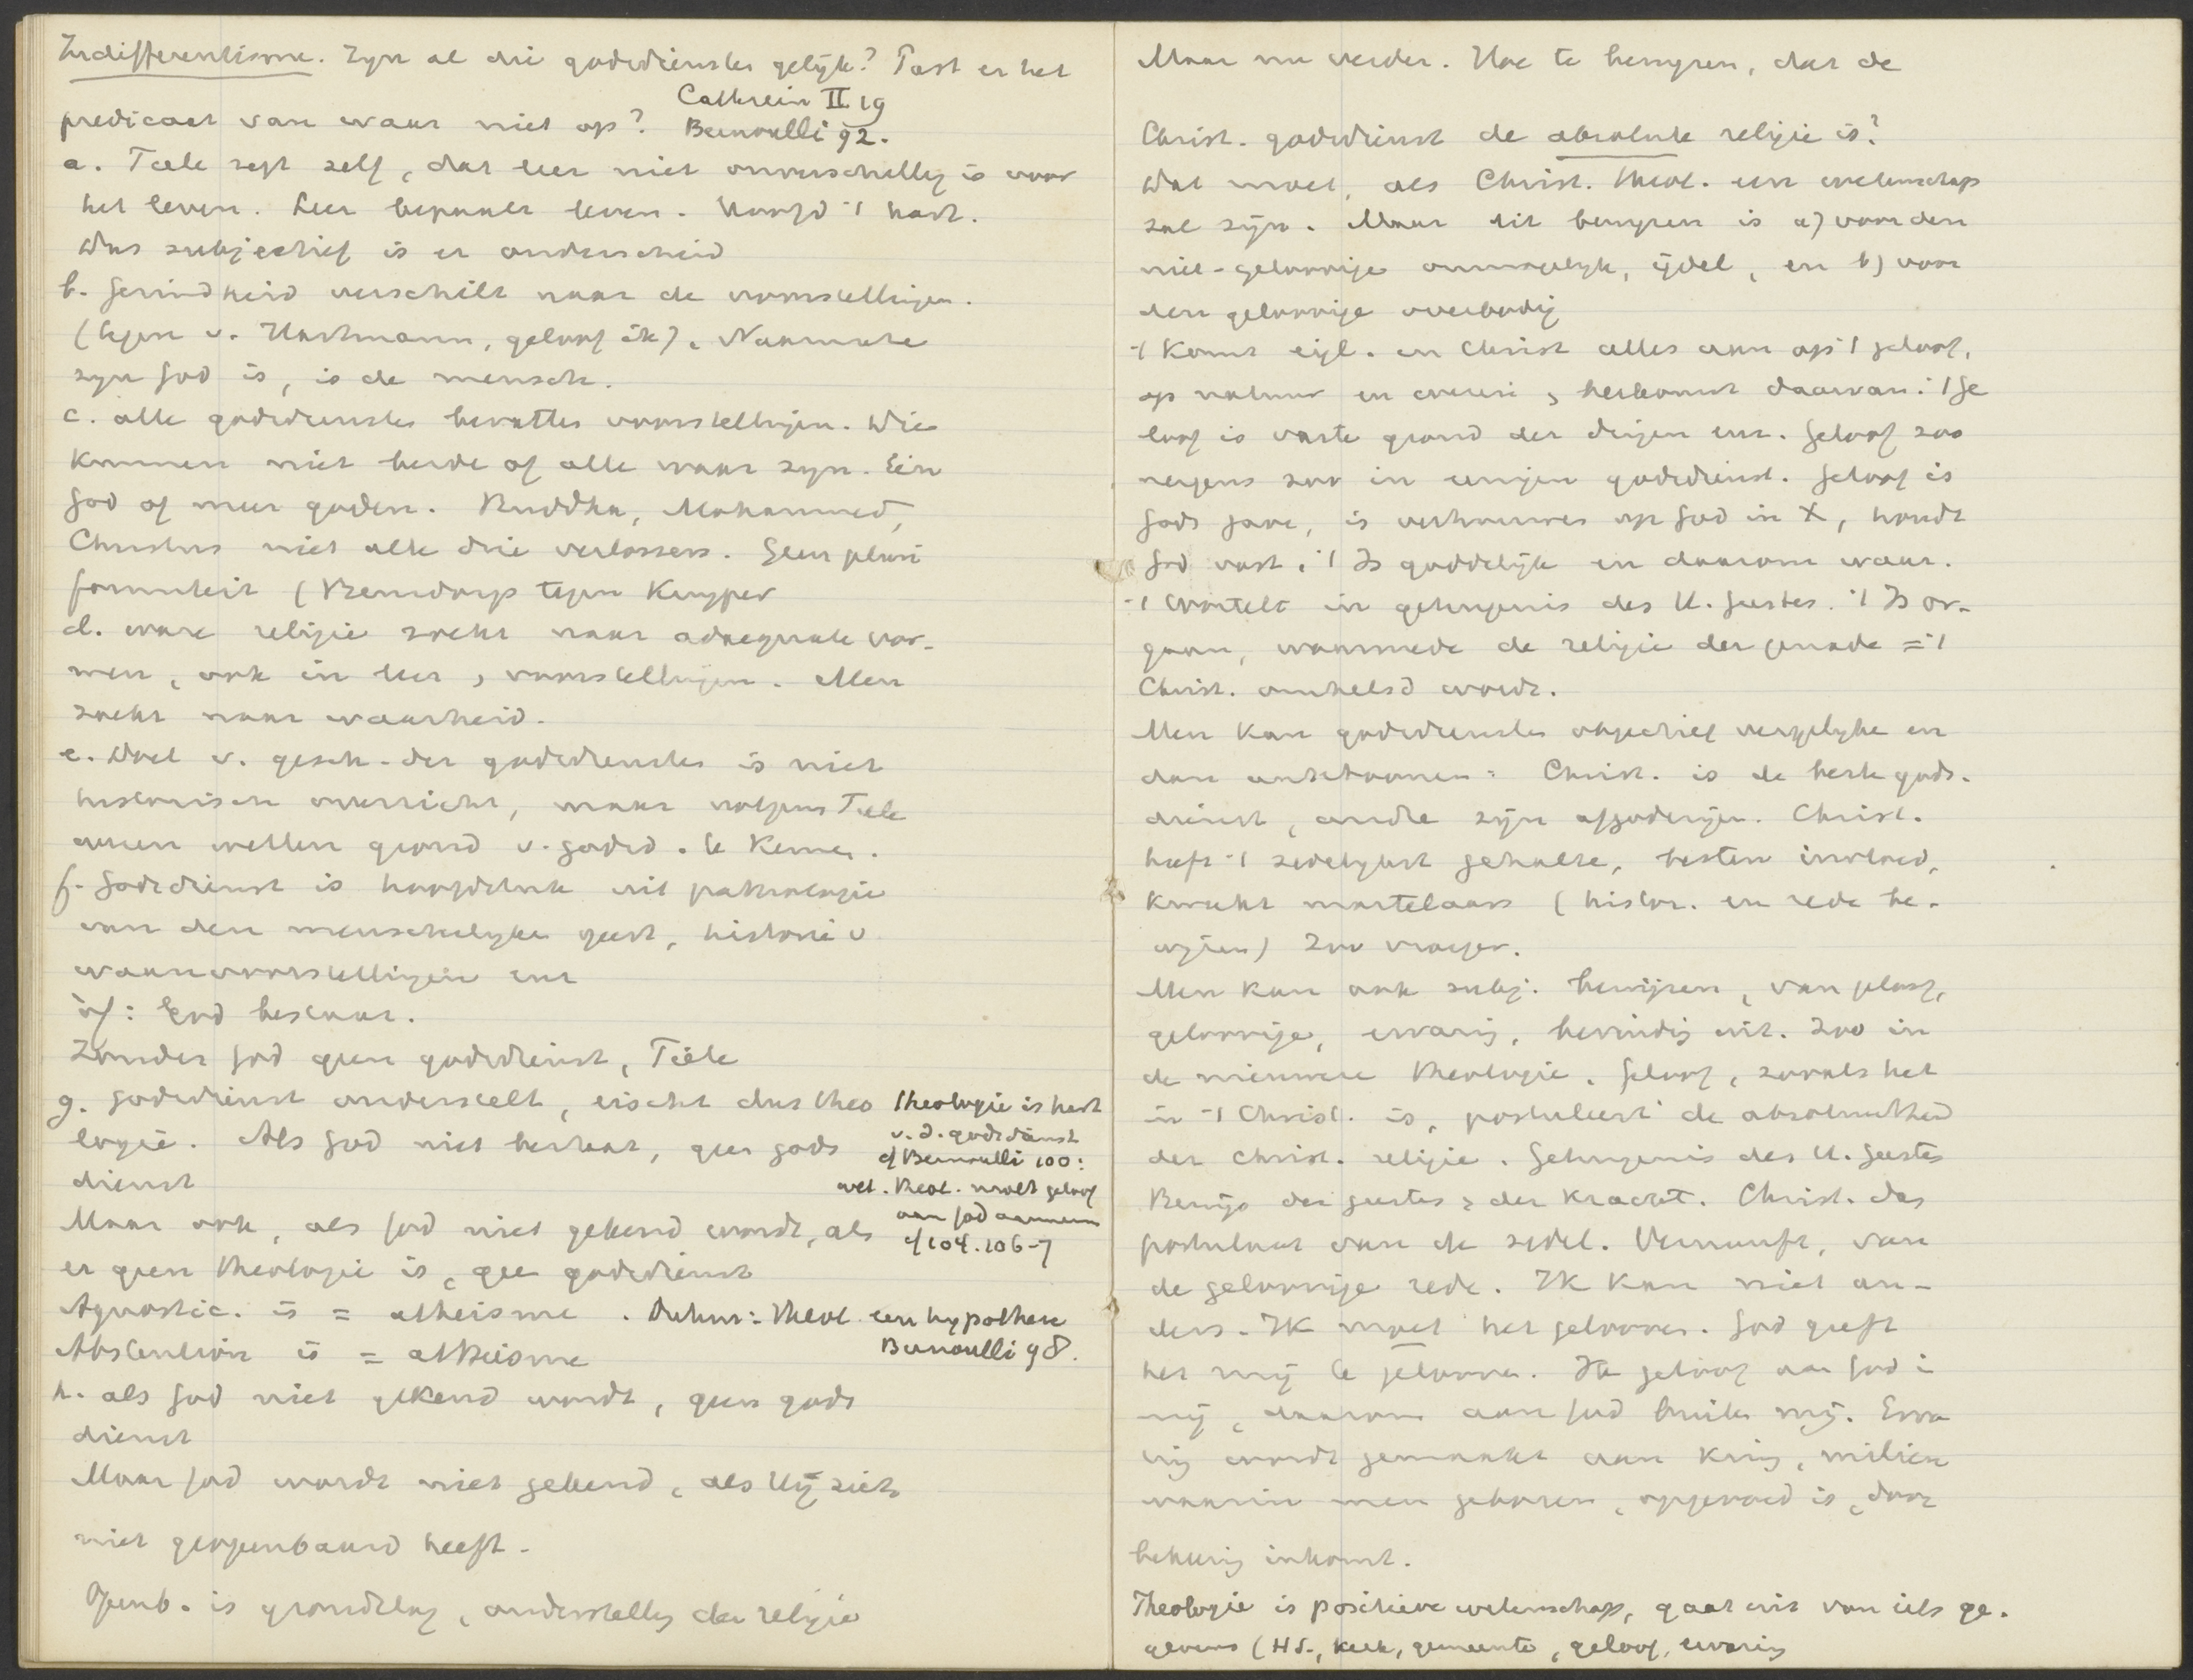 Indifferentisme. Zyn al die godsdiensten gelijk? Past er het
Cathrein II 19
predicaat van waar niet op? Bernoulli 92.
a. Tiele zegt zelf, dat leer niet onverschillig is voor
het leven. Leer bepaalt leven. Hoofd 't hart.
Dus subjectief is er onderscheid
b. Gezindheid verschilt naar de voorstellingen.
(tegen v. Hartmann, geloof ik). Naarmate
zyn God is, is de mensch.
c. alle godsdiensten bevatten voorstellingen. Die
kunnen niet beide of alle waar zyn. Eén
God of meer goden. Buddha, Mohammed,
Christus niet alle drie verlossers. Geen pluri
formiteit (Bensdorp tegen Kuyper
d. ware religie zoekt naar adaequate vor-
men, ook in leer, voorstellingen. Men
zoekt naar waarheid.
e. Doel v. gesch. der godsdiensten is niet
historisch overzicht, maar volgens Tiele
wezen en grond v. godsd. te kennen.
f. Godsdienst is hoofdstuk uit pathologie
van den menschelyken geest, historie v
waanvoorstellingen enz
òf: God bestaat.
Zonder God geen godsdienst, Tiele
g. Godsdienst onderstelt, eischt dus theo
logie. Als God niet bestaat, geen gods
dienst
Theologie is hart
v. d. godsdienst
cf Bernoulli 100:
wet. Theol. moet geloof
aan God aannemen
cf 104. 106-7
Maar ook, als God niet gekend wordt, als
er geen theologie is, geen godsdienst
Agnostic. is = atheisme. Duhm: Theol. een hypothese
Bernoulli 98.
Abstention is = atheisme
h. als God niet gekend wordt, geen gods
dienst
Maar God wordt niet gekend, als Hij zich
niet geopenbaard heeft.
Openb. is grondslag, onderstelling der religie
Maar nu verder. Hoe te bewyzen, dat de
Christ. godsdienst de absolute religie is?
Dat moet, als Christ. theol. een wetenschap
zal zijn. Maar dit bewyzen is a) voor den
niet-geloovige onmogelyk, ijdel, en b) voor
den geloovige overbodig
't Komt eigl. in Christ alles aan op 't geloof,
op natuur en wezen, herkomst daarvan: 't ge
loof is vaste grond der dingen enz. Geloof zoo
nergens zoo in eenigen godsdienst. Geloof is
Gods gave, is vertrouwen op God in X, houdt
God vast, 't Is goddelijk en daarom waar.
't wortelt in getuigenis des H. Geestes. 't Is or-
gaan, waarmede de religie der genade = 't
Christ. omhelsd wordt.
Men kan godsdiensten objectief vergelyken en
dan aantoonen: Christ. is de beste gods-
dienst, andre zijn afgoderijen. Christ.
heeft 't zedelykst gehalte, besten invloed,
kweekt martelaars (histor. en rede be-
wijzen) Zoo vroeger.
Men kan ook subj. bewijzen, van geloof,
geloovige, ervaring, bevinding uit. Zoo in
de nieuwere theologie. Geloof, zooals het
in 't Christ. is, postuleert de absoluutheid
der Christ. religie. Getuigenis des H. Geestes
Bewijs des geestes, der kracht. Christ. das
postulaat van de zedel. Vernunft, van
de geloovige rede. Ik kan niet an-
ders. Ik moet het gelooven. God geeft
het mij te gelooven. Ik geloof aan God i
mij, daarom aan God buiten mij. Erva
ring wordt gemaakt aan Kring, milieu
waarin men geboren, opgevoed is, door
bekeering inkomt.
Theologie is positieve wetenschap, gaat uit van iets ge-
gevens (H S., Kerk, gemeente, geloof, ervaring